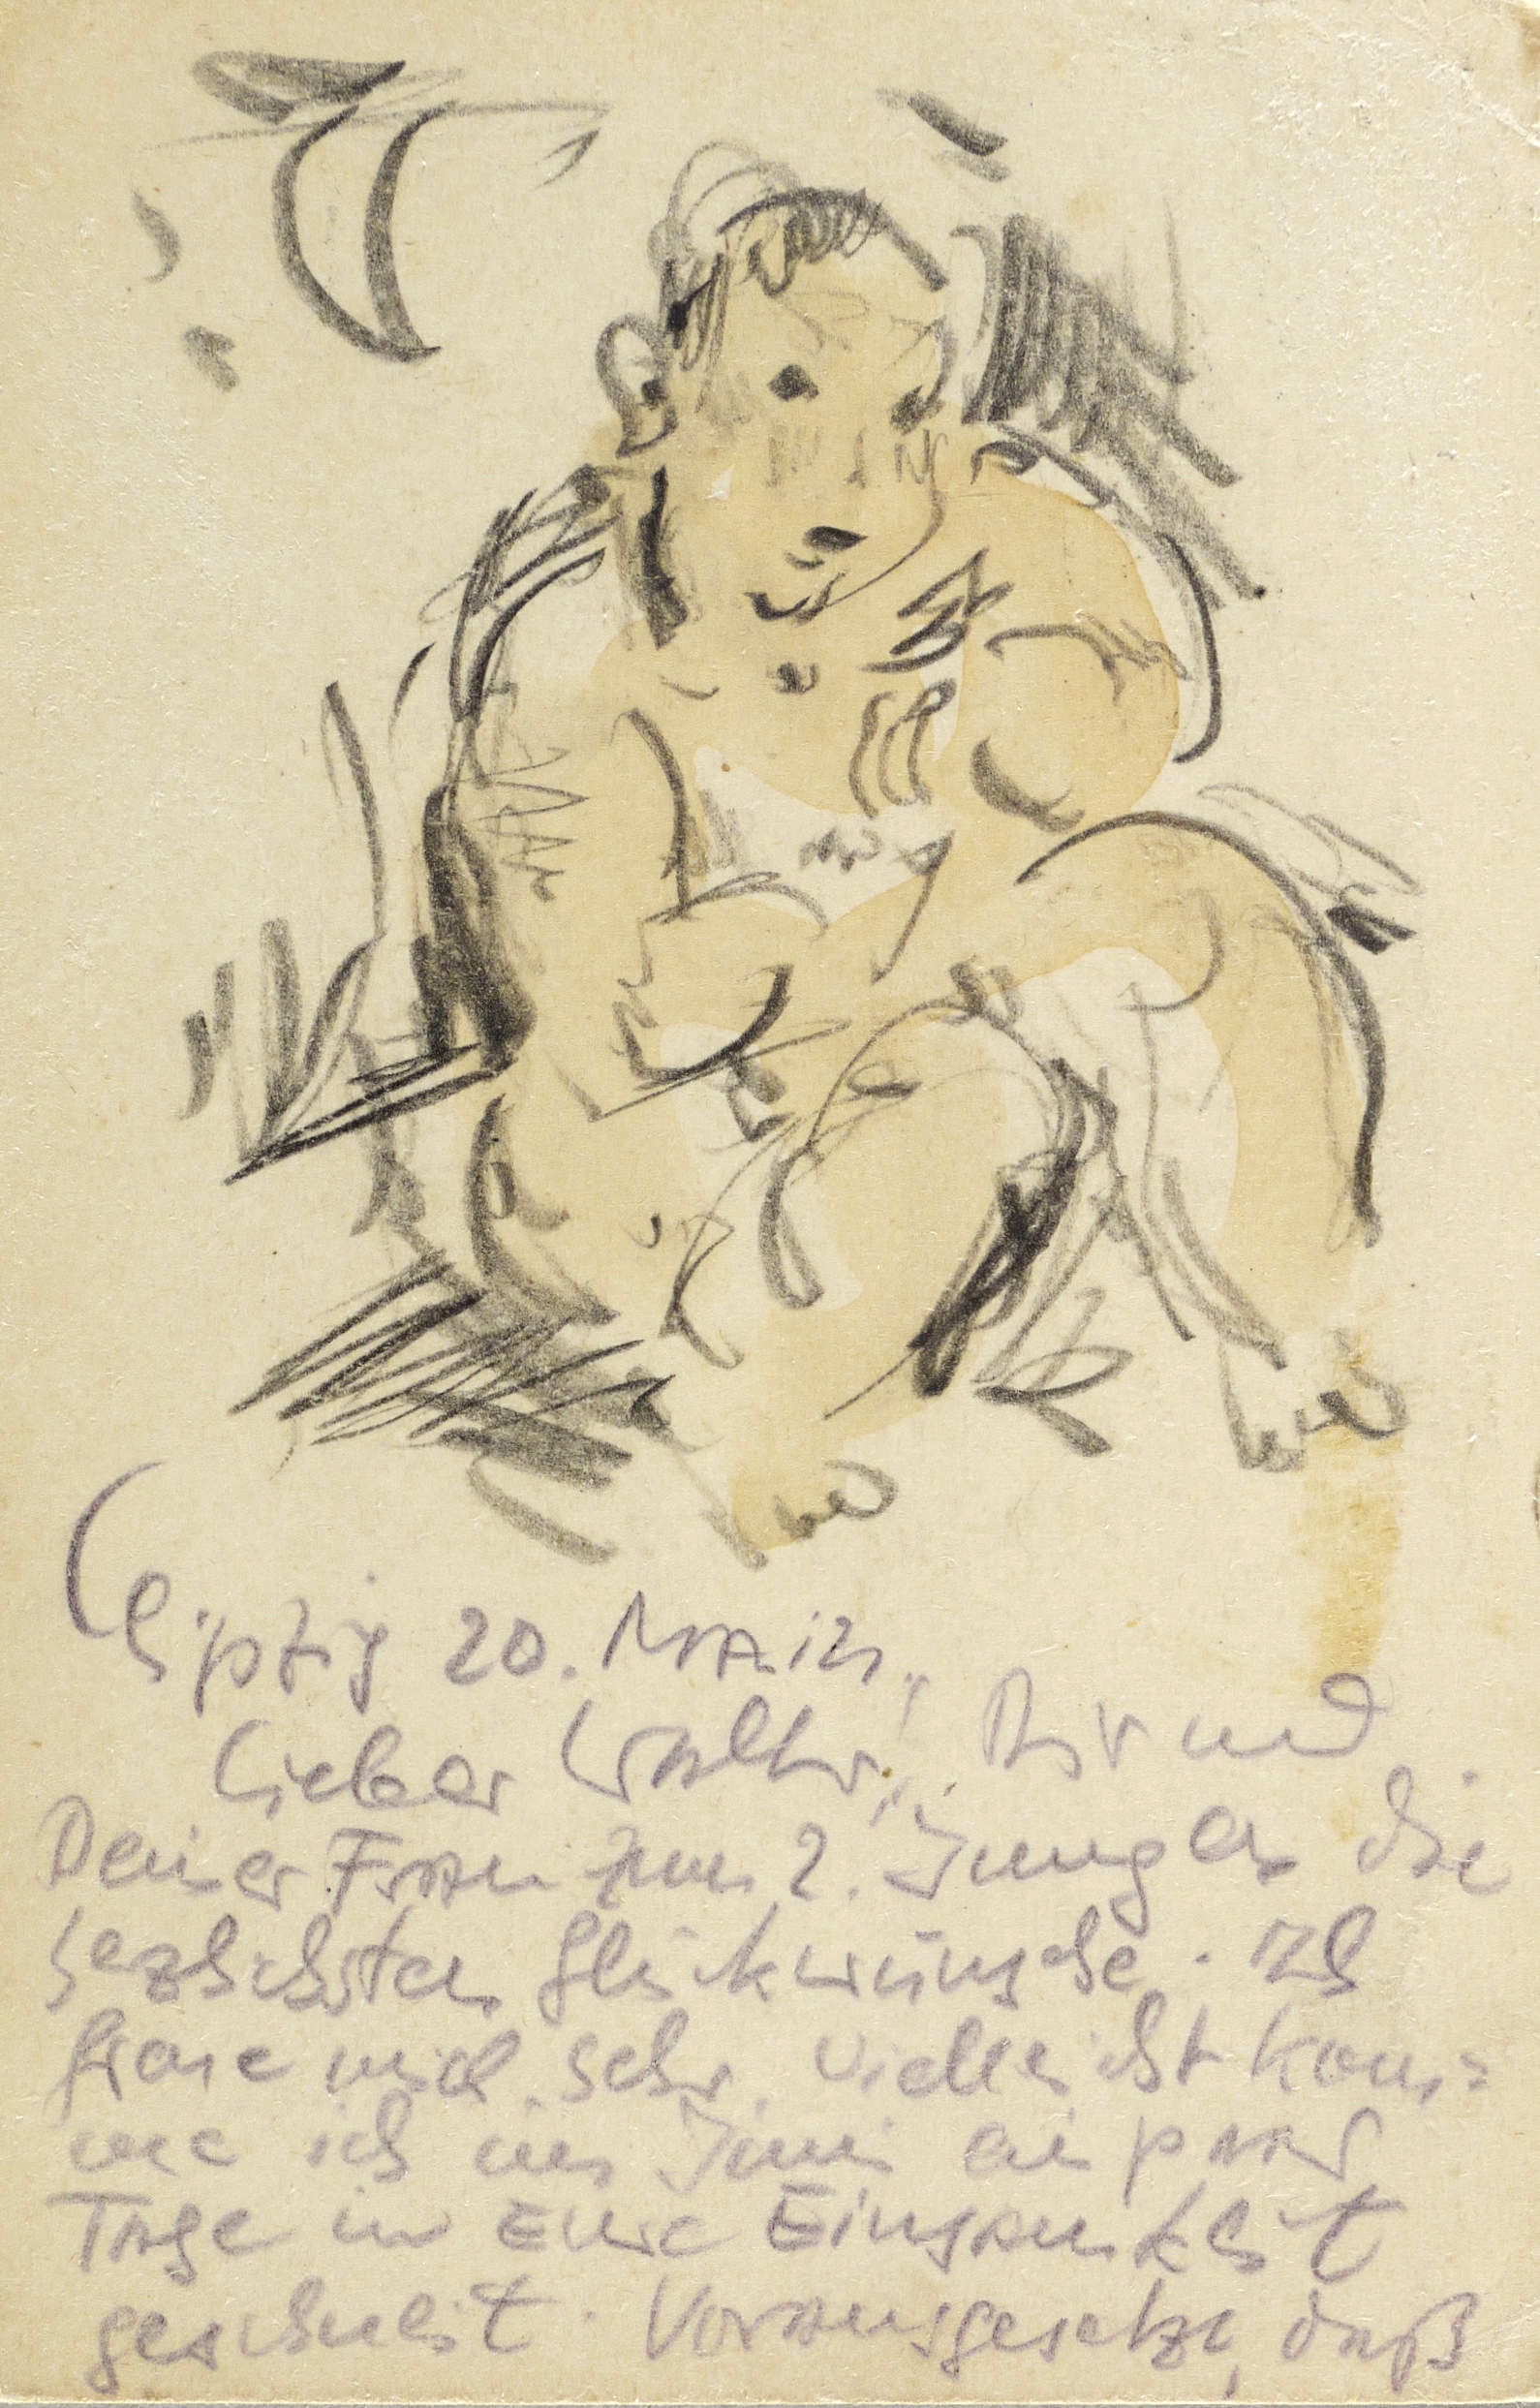 Leipzig 20. Mai
Lieber Walter! Dir und
Deiner Frau zum 2. Jungen die
herzlichsten Glückwünsche. Ich
freue mich sehr. Vielleicht kom=
me ich im Juni ein paar
Tage in Eure Einsamkeit
geschneit. Vorausgesetzt, daß